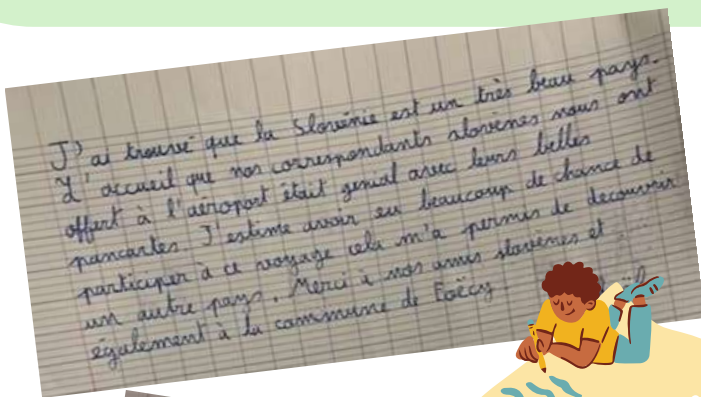 J'ai trouvé que la Slovénie est un très beau pays.
L'accueil que nos correspondants slovènes nous ont
offert à l'aéroport était genial avec leurs belles
pancartes. J'estime avoir eu beaucoup de chance de
participer à ce voyage cela m'a permis de decouvrir
un autre pays. Merci à nos amis slovènes et
également à la commune de Foëcy.